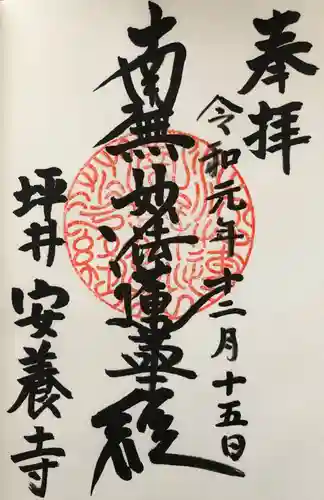 奉拝
令和元年十二月十五日
南無妙法蓮華経
坪井 安養寺